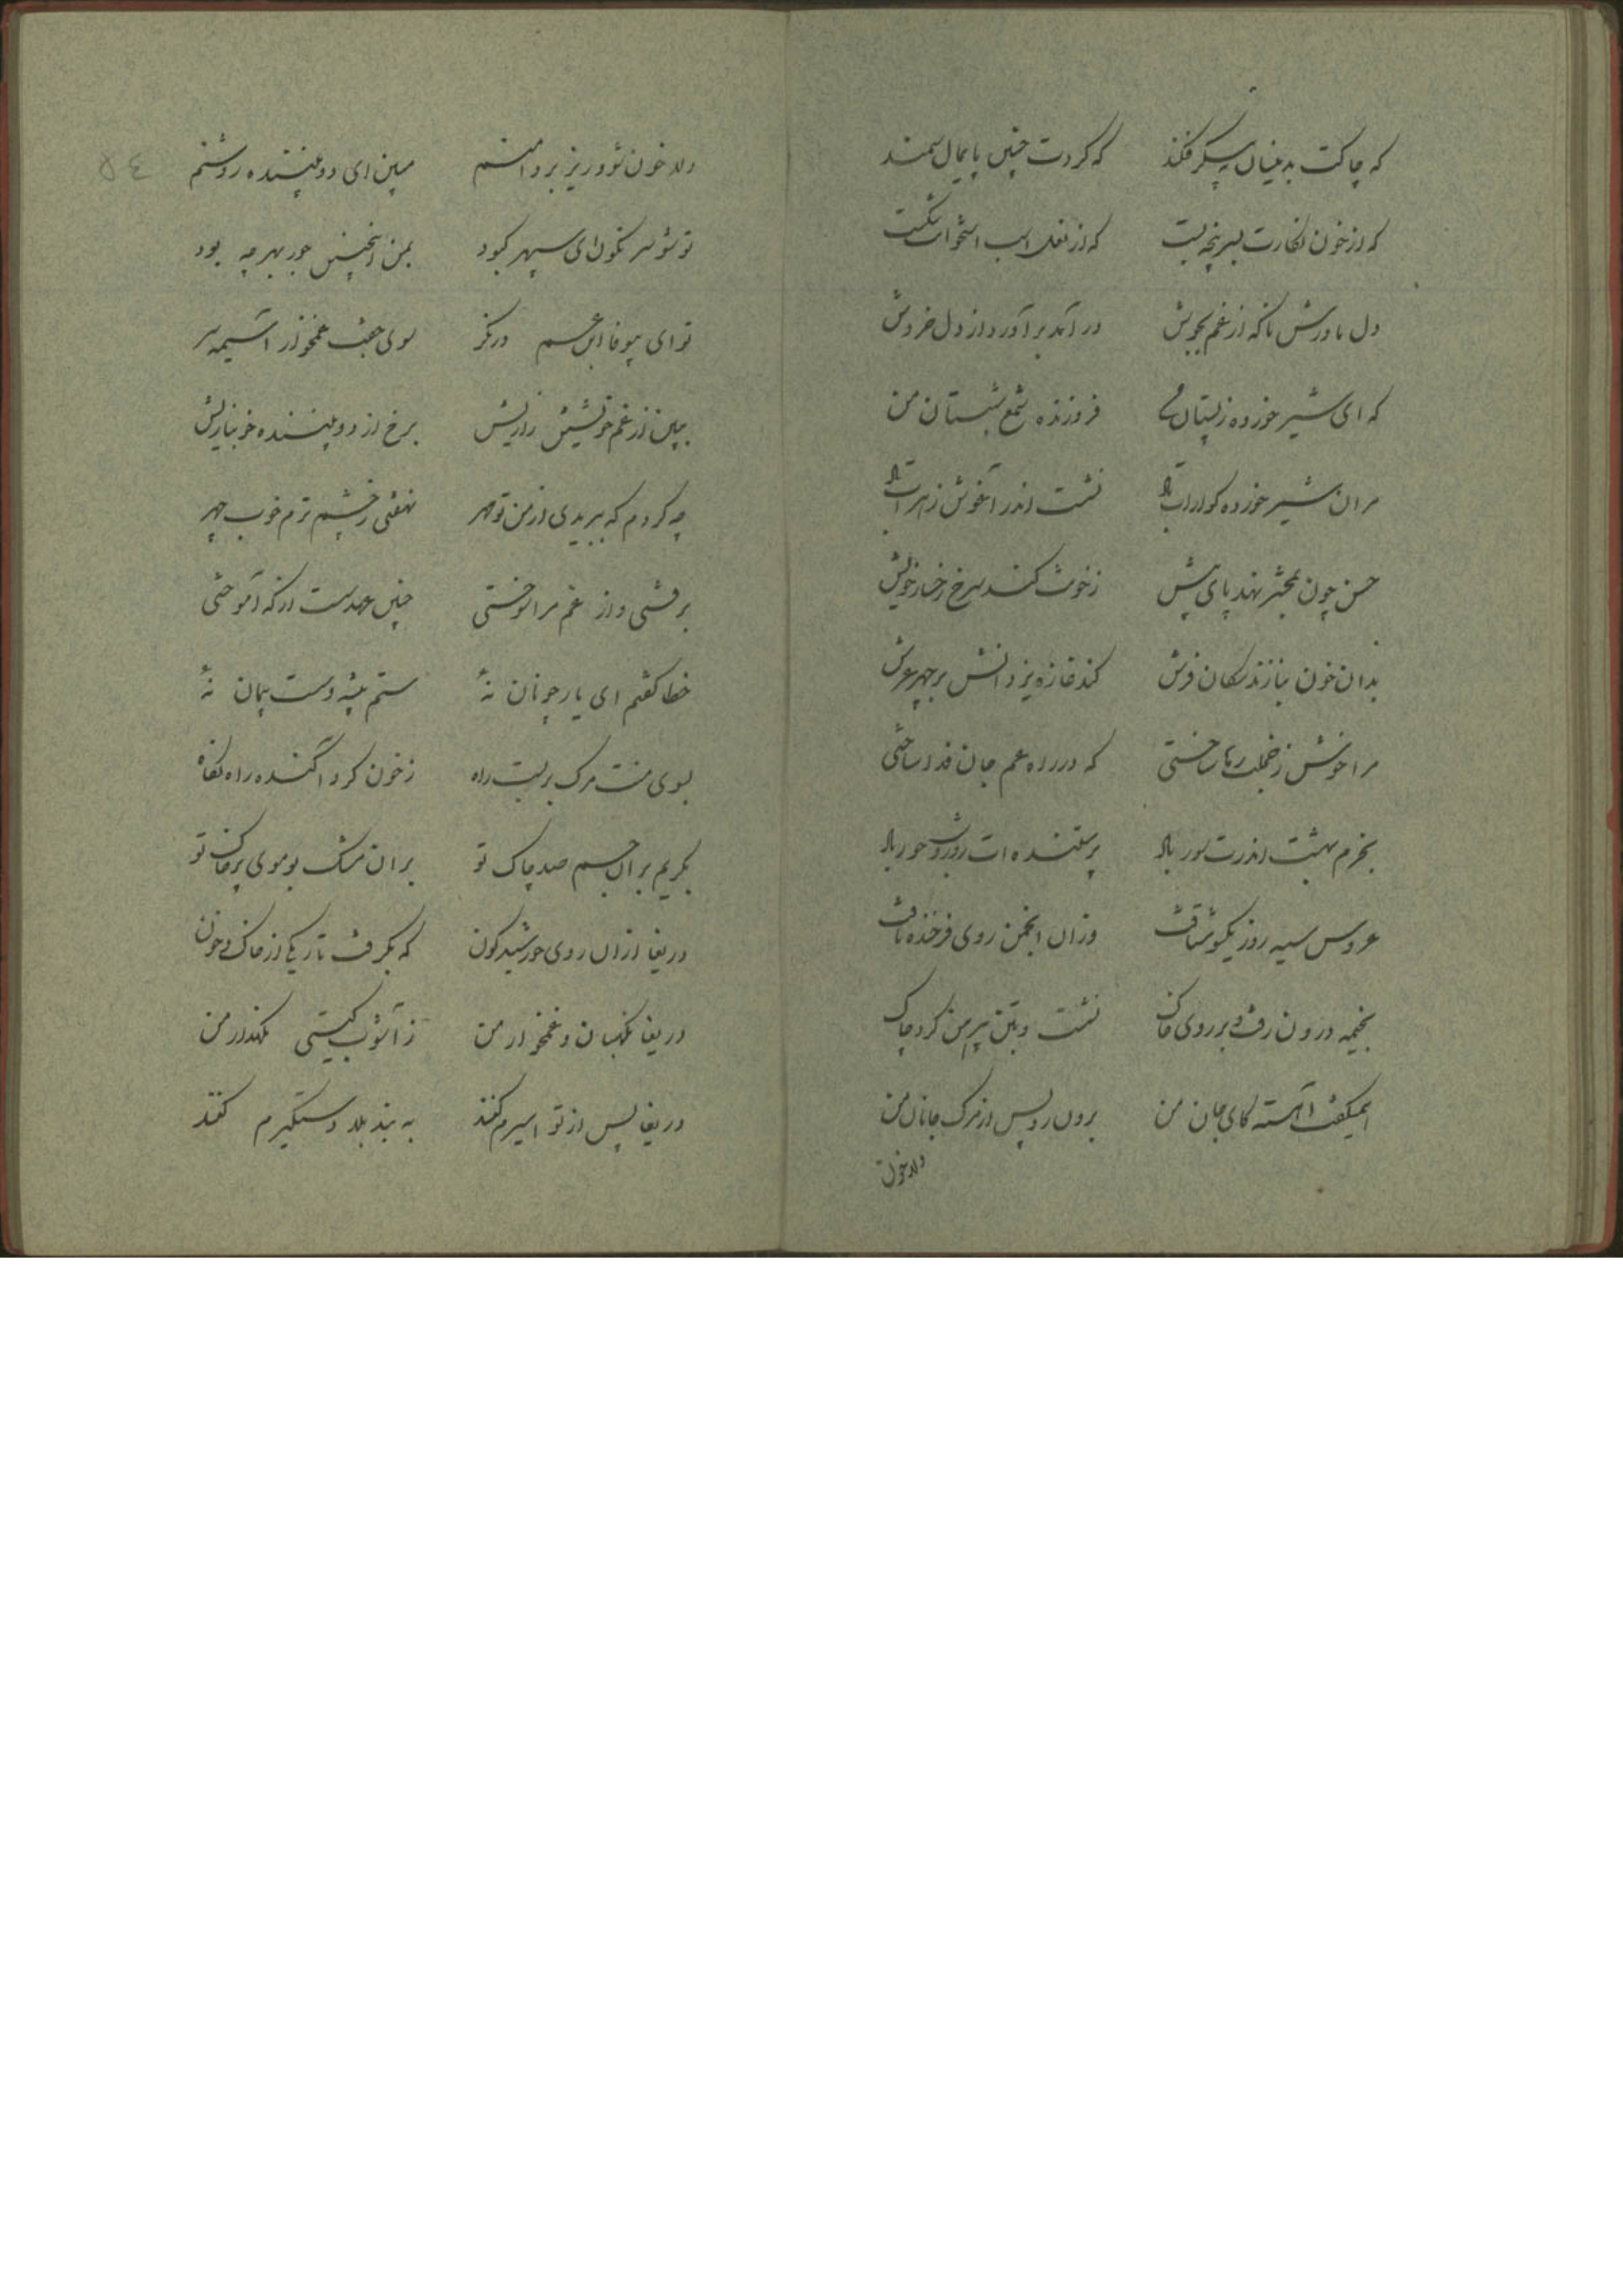 که چاکت بدینسان به پیکر فکند که کردت چنین پایمال سمند
که از خون نگارت بسر پنجه بست که از نعل اسب استخوانت شکست
دل مادرش ناگه از غم بجوش در آمد بر آورد از دل خروش
که ای شیر خورده ز پستان من فروزنده شمع شبستان من
مر ان شیر خورده گوارات باد نشست اندر آغوش زهرات باد
حسن چون بمحشر نهد پای پیش ز خونت کند سرخ رخسار خویش
بدان خون بنازند سکان فرش کند غازه یزدانش بر چهر عرش
مرا خوش ز خجلت رها ساختی که در راه عم جان فدا ساختی
بخرم بهشت اندرت سور باد پرستنده ات روز و شب حور باد
عروس سیه روز نیکو شتافت وزان انجمن روی فرخنده تافت
بخیمه درون رفت و بر روی خاک نشست و بتن پیرهن کرد چاک
همیگفت آهسته کای جان من برون رو پس از مرگ جانان من
دلا خون
دلا خون شو و ریز بر دامنم مبین ای دو بیننده روشنم
تو شو سر نگون ای سپهر کبود بمن اینچنین جور بهر چه بود
تو ای بیوفا ابن عم درنگر سوی جفت غمخوار آسیمه سر
ببین از غم خویشتن زاریش برخ از دو بیننده خونباریش
چه کردم که ببریدی از من تو مهر نهفتی ز چشم ترم خوب چهر
برفتی و از غم مرا سوختی چنین عهد سست از که آموختی
خطا گفتم ای یار چونان نهٔ ستم پیشه و سست پیمان نهٔ
بسوی منت مرگ بر بست راه ز خون کرد آکنده راه نگاه
بگریم بر آن جسم صد چاک تو بر ان مشک بو موی پر خاک تو
دریغا ازان روی خورشید گون که بگرفت تاریکی از خاک و خون
دریغا نگهبان و غمخوار من ز آشوب گیتی نگهدار من
دریغا پس از تو اسیرم کنند به بند بلا دستگیرم کنند
٥٤